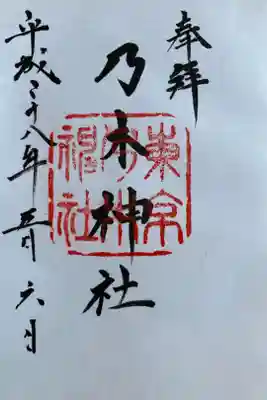 奉拝
乃木神社
平成二十八年五月六日
東京
神社